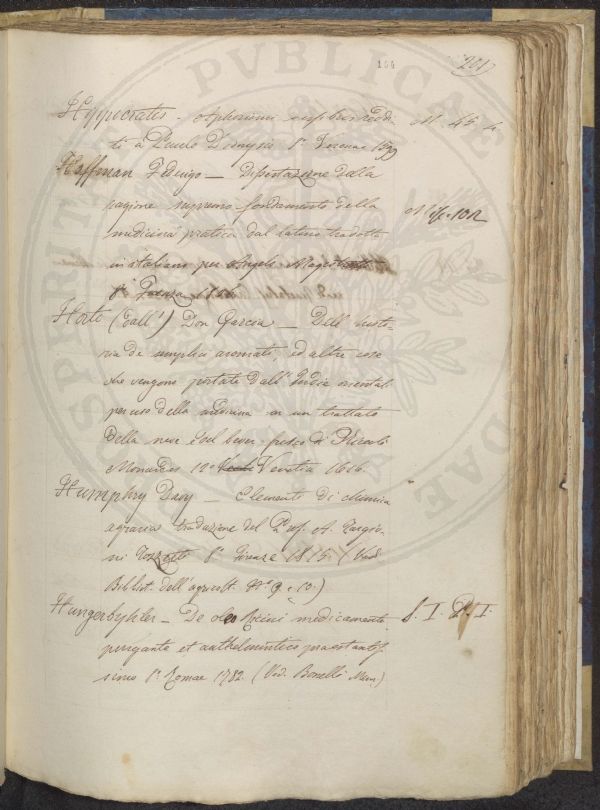 PVBLICAE
PROSPERITATI
164
201
Hippocrates - Aphorismi
ti a Paulo Dionysio 8° 1599
M. 45. 4.
Hoffman Federigo — Dissertazione sulla
ragione supremo fondamento della
medicina pratica dal latino tradotta
in italiano per Angelo
8° Faenza
Horto (Dall') Don Garcia — Dell' histo-
ria de semplici aromati, ed altre cose
che vengono portate dall' Indie orientali
per uso della medicina con un trattato
della neve e del bever fresco di Nicolò
Monardes 12° Venetia 1616.
Humphry Davy — Elementi di Chimica
agraria traduzione del Prof. A. Targio-
ni Tozzetti 8° Firenze 1815. (Ved.
Bibliot. dell' agricolt. N° 9 e 10.)
Hungerbyhler — De oleo Ricini medicamento
purgante et anthelmintico praestantis-
simo 8° Romae 1782. (Ved. Bonelli Mem.)